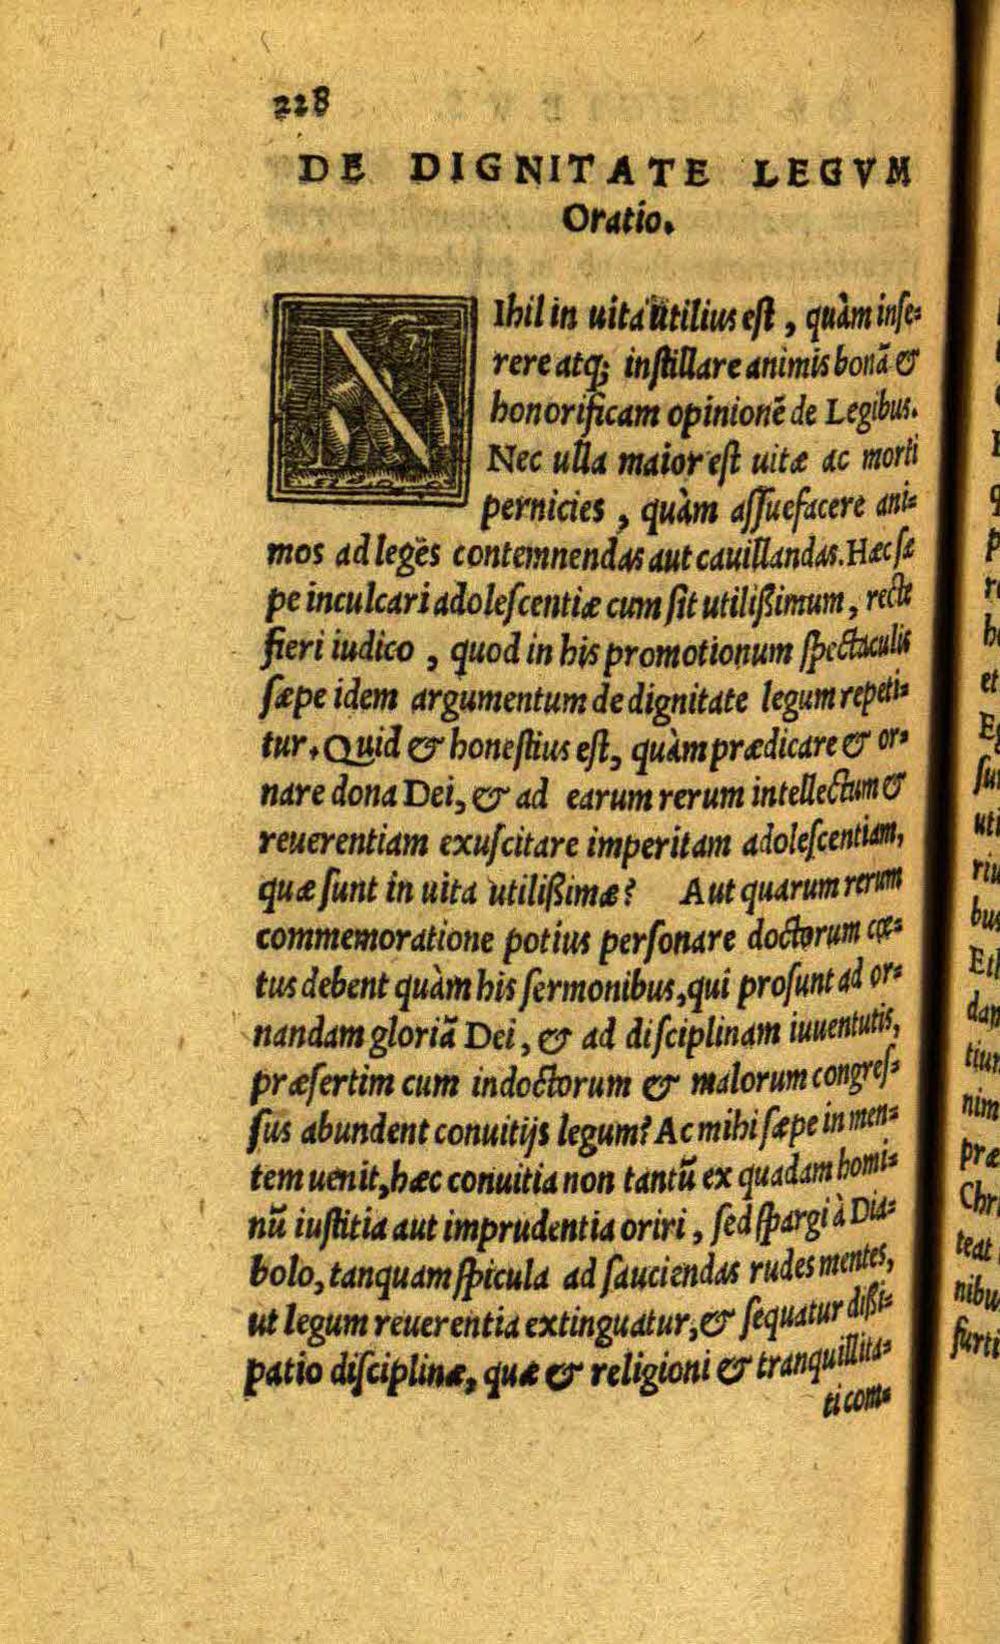 228
DE DIGNITATE LEGVM
Oratio.
NIhil in uita utilius est, quàm inse-
rere atq; instillare animis bonã &
honorificam opinionẽ de Legibus.
Nec ulla maior est uitæ ac morti
pernicies, quàm assuefacere ani-
mos ad leges contemnendas aut cauillandas. Hæc sæ
pe inculcari adolescentiæ cum sit utilißimum, recte
fieri iudico, quod in his promotionum spectaculis
sæpe idem argumentum de dignitate legum repeti-
tur. Quid & honestius est, quàm prædicare & or-
nare dona Dei, & ad earum rerum intellectum &
reuerentiam exuscitare imperitam adolescentiam,
quæ sunt in uita utilißimæ? Aut quarum rerum
commemoratione potius personare doctorum cœ-
tus debent quàm his sermonibus, qui prosunt ad or-
nandam gloriã Dei, & ad disciplinam iuuentutis,
præsertim cum indoctorum & malorum congres-
sus abundent conuitijs legum? Ac mihi sæpe in men-
tem uenit, hæc conuitia non tantũ ex quadam homi-
nũ iustitia aut imprudentia oriri, sed spargi à Dia-
bolo, tanquam spicula ad sauciendas rudes mentes,
ut legum reuerentia extinguatur, & sequatur dißi-
patio disciplinæ, quæ & religioni & tranquillita-
ti com-